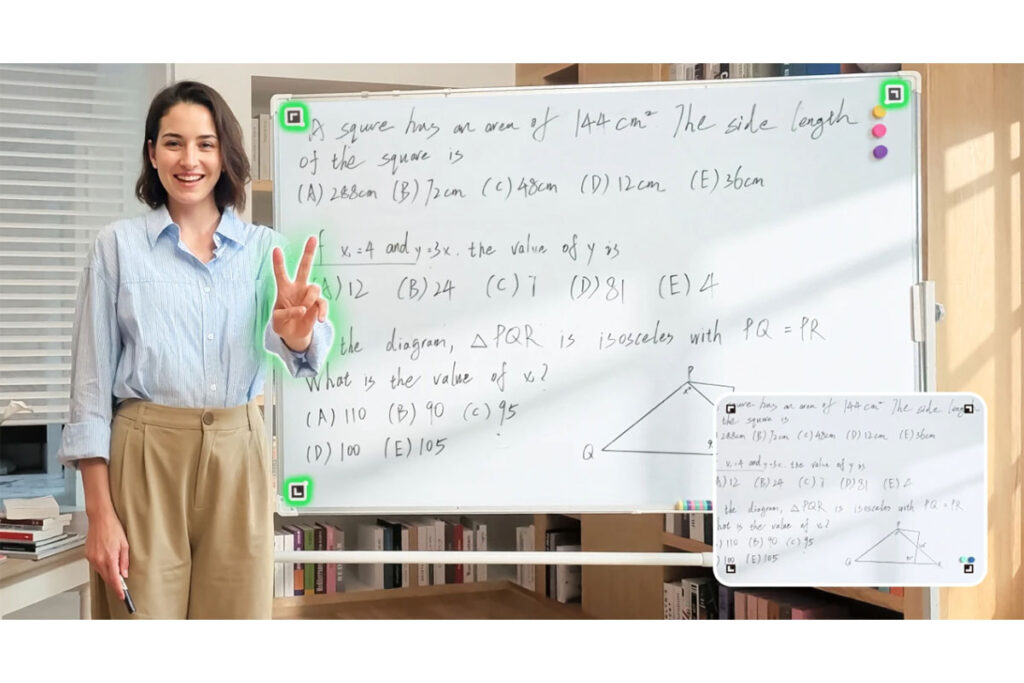 A square has an area of 144 cm² The side length
of the square is
(A) 288cm (B) 72cm (C) 48cm (D) 12cm (E) 36cm
f x=4 and y=3x. the value of y is
(A) 12 (B) 24 (C) 7 (D) 81 (E) 4
the diagram, △PQR is isosceles with PQ = PR
What is the value of x?
(A) 110 (B) 90 (C) 95
(D) 100 (E) 105
P
x°
Q
has an area of 144 cm² The side
the square is
288cm (B) 72cm (C) 48cm (D) 12cm (E) 36cm
x=4 and y=3x. the value of y is
12 (B) 24 (C) 7 (D) 81 (E) 4
the diagram, △PQR is isosceles with PQ = PR
hat is the value of x?
110 (B) 90 (C) 95
100 (E) 105
P
Q
R